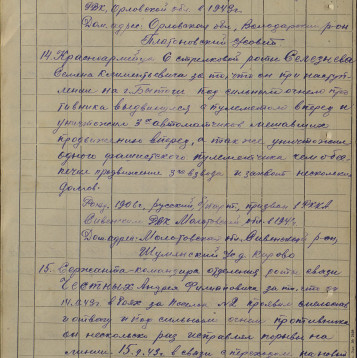 РВК, Орловской обл. в 1943 г.
Дом. адрес: Орловская обл., Володарский р-он
Платоновский с/совет
14. Красноармейца 6 стрелковой роты Селезнева
Семена Климентьевича за то, что он при наступ-
лении на г. под сильным огнем про-
тивника выдвинулся с пулеметом вперед и
уничтожил 3-х автоматчиков мешавших
продвижению вперед, а так же уничтожил
одного фашистского пулеметчика чем обес-
печил продвижение 3го взвода и захват нескольких
домов.
Рожд. 1906 г., русский, б/парт., призван в РККА
Сивинским РВК Молотовской обл. в 1941 г.
Дом. адрес: Молотовская обл. Сивинский р-он,
с/с д.
15. Сержанта - командира отделения роты связи
Честных Андрея за то, что
14.9.43 г. в боях за проявил смелость
и отвагу и под сильным огнем противника
он несколько раз исправлял порывы на
линии. 15.9.43 г. в связи с переходом на новый